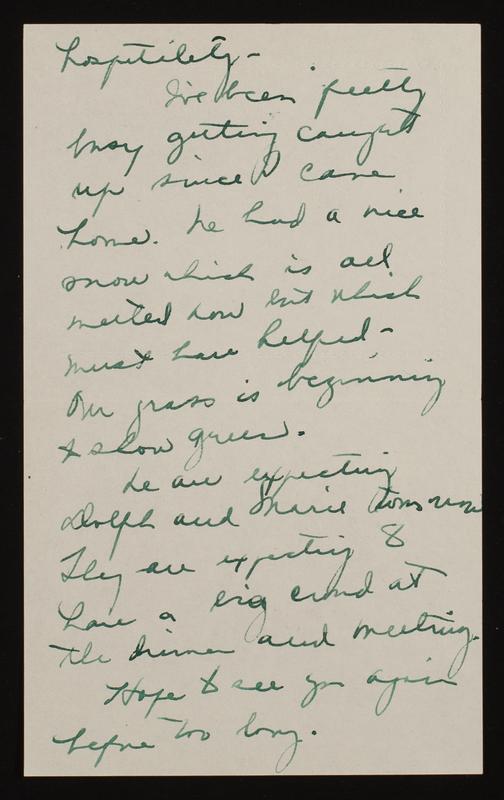 hospitility -
I've been pretty
busy getting caught
up since I came
home. We had a nice
snow which is all
melted now but which
must have helped -
Our grass is beginning
to show green.
We are expecting
Dolph and Marie tomorrow
They are expecting to
have a big crowd at
the dinner and meeting.
Hope to see you again
before too long.